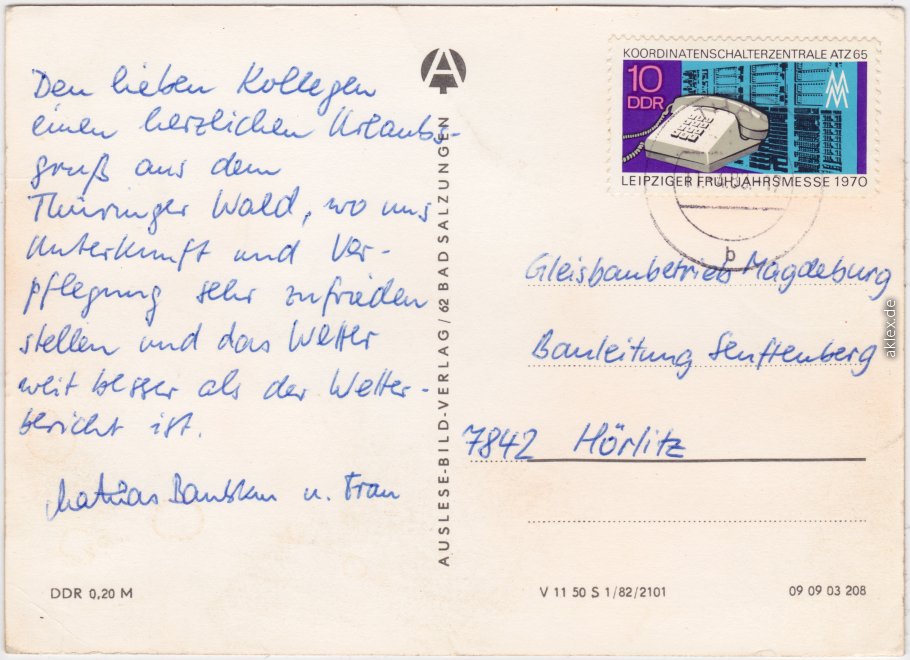 Den lieben Kollegen
einen herzlichen Urlaubs-
gruß aus dem
Thüringer Wald, wo uns
Unterkunft und Ver-
pflegung sehr zufrieden
stellen und das Wetter
weit besser als der Wetter-
bericht ist.
u. Frau
DDR 0,20 M
AUSLESE-BILD-VERLAG/62 BAD SALZUNGEN
KOORDINATENSCHALTERZENTRALE ATZ 65
10
DDR
LEIPZIGER FRÜHJAHRSMESSE 1970
b
Gleisbaubetrieb Magdeburg
Bauleitung Senftenberg
7842 Hörlitz
V 11 50 S 1/82/2101
09 09 03 208
aklex.de